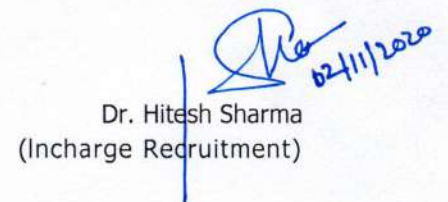 02/11/2020
Dr. Hitesh Sharma
(Incharge Recruitment)